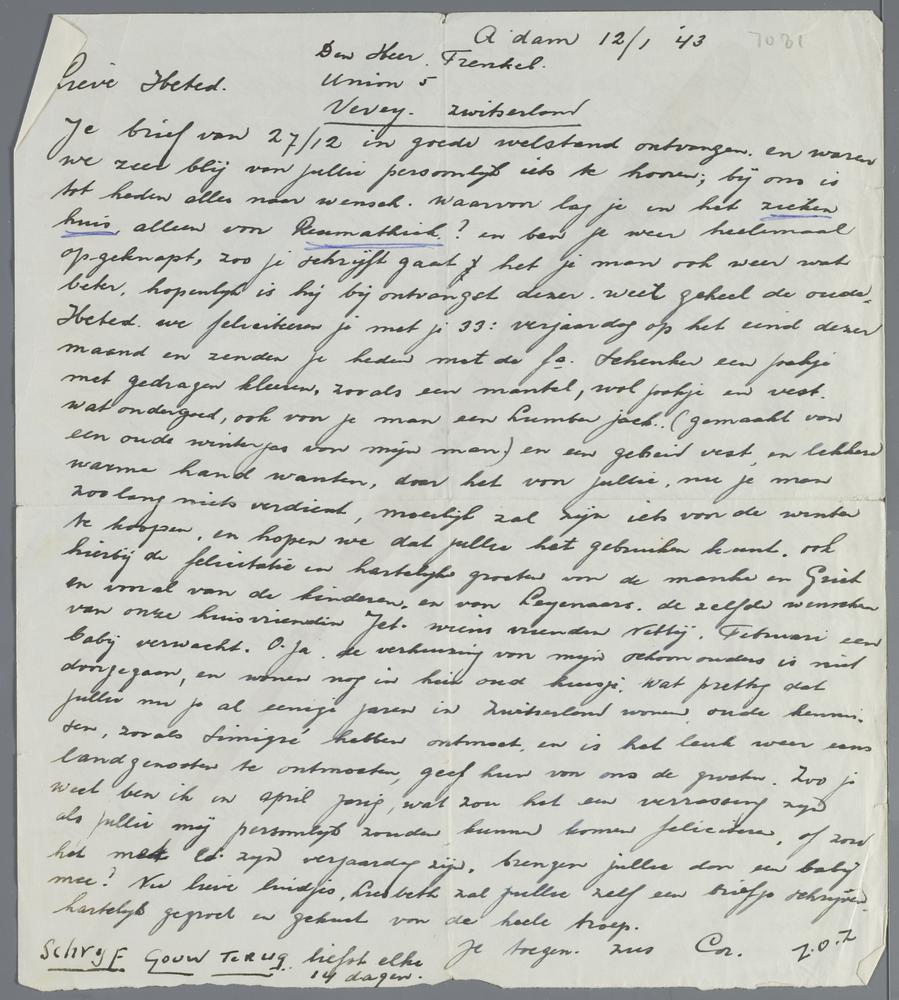 A'dam 12/1 '43 7081
Den Heer. Frenkel.
Lieve Heted. Union 5
Vevey. Zwitserland
Je brief van 27/12 in goede welstand ontvangen. en waren
we zeer blij van jullie persoonlijk iets te hooren; bij ons is
tot heden alles naar wensch. waarvoor lag je in het zieken
huis, alleen voor Reumathiek.? en ben je weer heelemaal
opgeknapt, zoo je schrijft gaat het je man ook weer wat
beter, hopenlijk is hij bij ontvangst dezer. weer geheel de oude.
Heted. we feliciteeren je met je 33: verjaardag op het eind dezer
maand en zenden je heden met de fa. Schenker een pakje
met gedragen kleeren, zooals een mantel, wol pakje en vest.
wat ondergoed, ook voor je man een Lumber jack.. (gemaakt van
een oude winterjas van mijn man) en een gebreid vest, en lekkere
warme hand wanten, daar het voor jullie, nu je man
zoolang niets verdient, moeilijk zal zijn iets voor de winter
te koopen, en hopen we dat jullie het gebruiken kunt. ook
hierbij de felicitatie en hartelijke groeten van de manke en Griet
en vooral van de kinderen, en van Leyenaars. de zelfde wenschen
van onze huisvriendin Jet. wiens vrienden Februari een
baby verwacht. O. ja. de verhuizing van mijn schoonouders is niet
doorgegaan, en wonen nog in hun oud huisje. Wat prettig dat
jullie nu je al eenige jaren in Zwitserland wonen, oude kennis-
sen, zooals hebben ontmoet, en is het leuk weer eens
landgenooten te ontmoeten, geef hun van ons de groeten. Zoo je
weet ben ik in april jarig, wat zou het een verrassing zijn
als jullie mij persoonlijk zouden kunnen komen feliciteeren, of zou
het met zijn verjaardag zijn, brengen jullie dan een baby
mee? Nu lieve luidjes, Liesbeth zal jullie zelf een briefje schrijven.
hartelijk gegroet en gekust van de heele troep.
Schrijf gouw terug. liefst elke Je toegen. zus Cor. z.o.z
14 dagen.